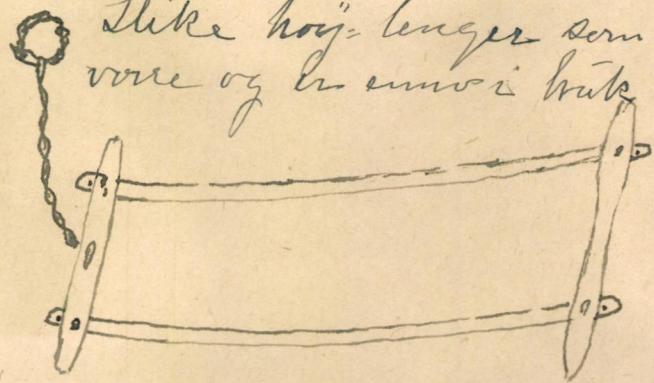 Slike høy= lenger som
vore og er enno i bruk